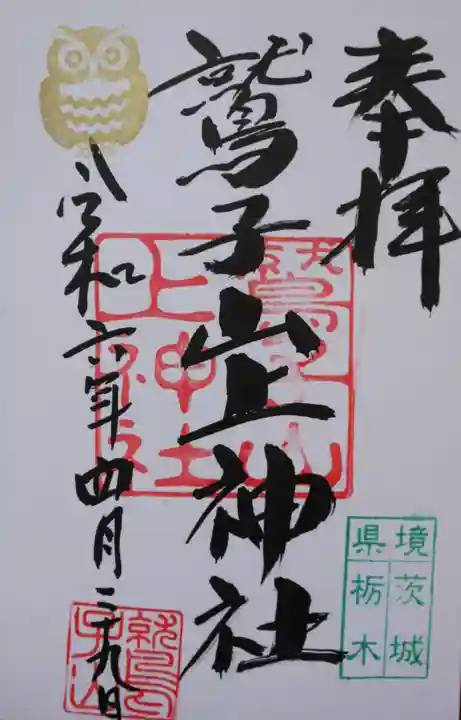 奉拝
鷲子山上神社
令和六年四月二十九日
鷲子山上神社
鷲子山
県境
茨城
栃木